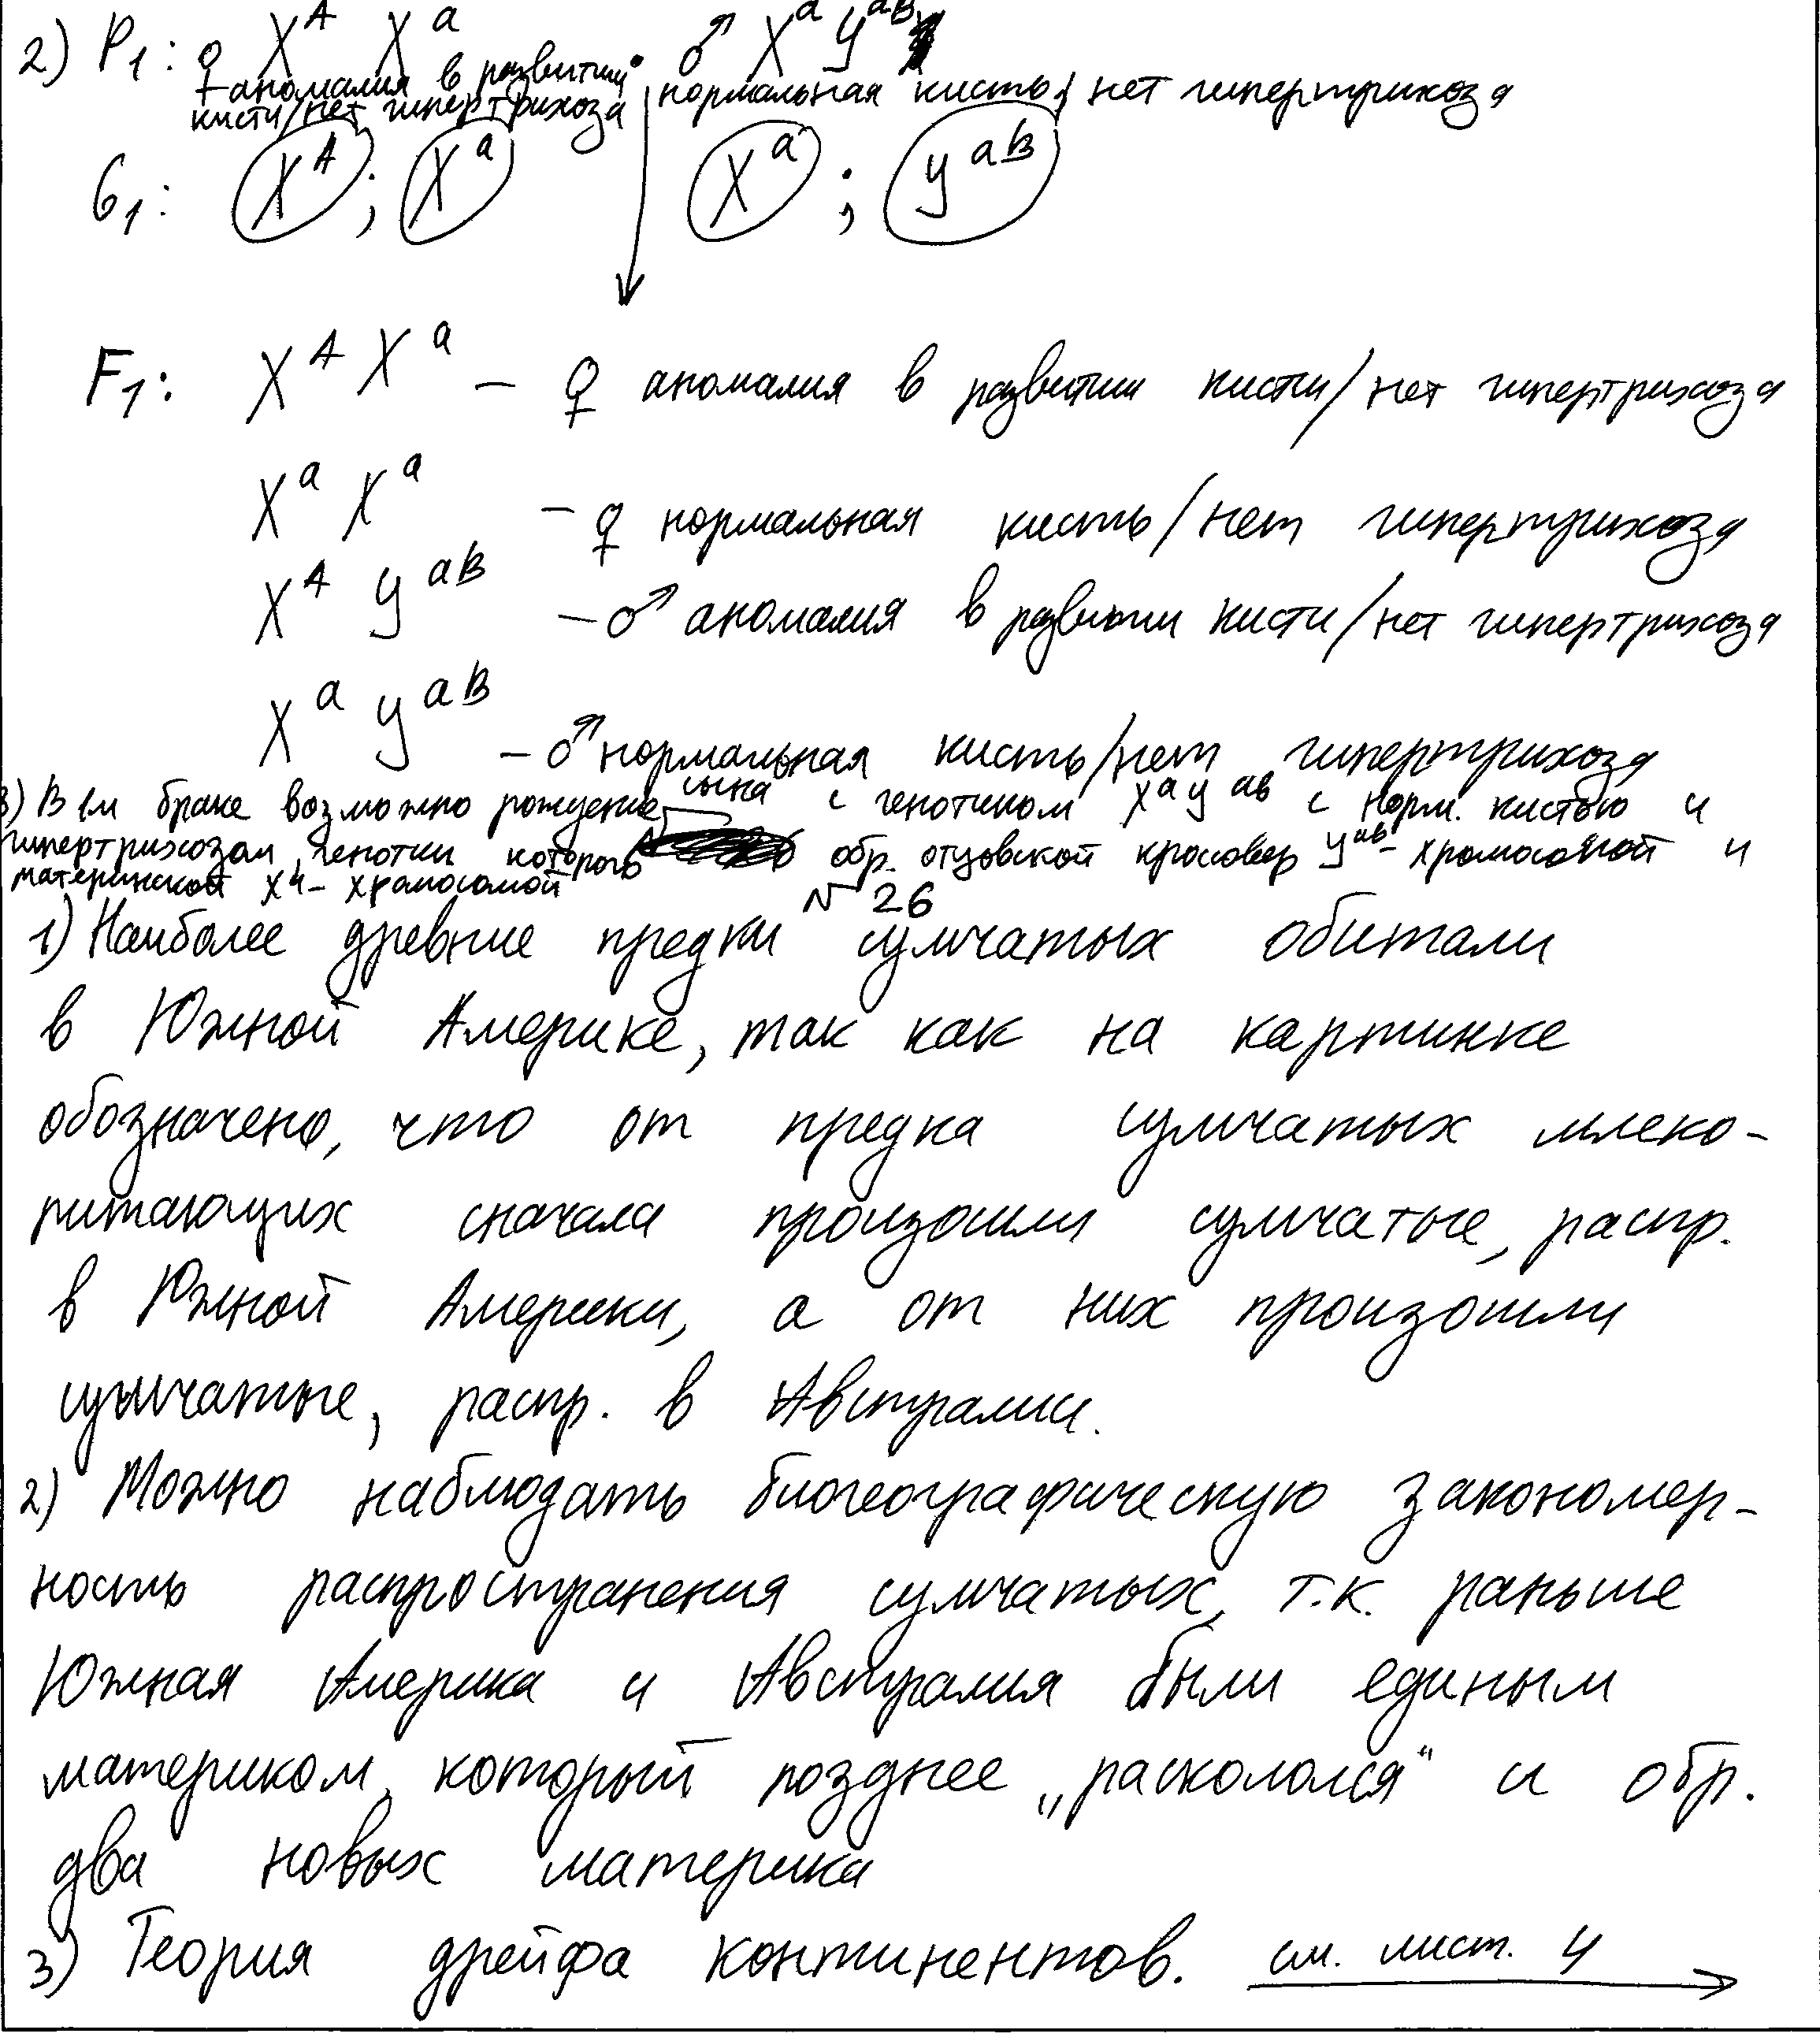 2) P₁: ♀ X^A X^a · ♂ X^a Y^aB
♀ аномалия в развитии кисти/нет гипертрихоза
нормальная кисть/ нет гипертрихоза
G₁: X^A ; X^a X^a ; Y^aB
F₁: X^A X^a – ♀ аномалия в развитии кисти/нет гипертрихоза
X^a X^a – ♀ нормальная кисть/нет гипертрихоза
X^A Y^aB – ♂ аномалия в развити кисти/нет гипертрихоза
X^a Y^aB – ♂ нормальная кисть/нет гипертрихоза
3) В 1м браке возможно рождение сына с генотипом X^a Y^ab с норм. кистью и
гипертрихозом, генотип которого обр. отцовской кроссовер Y^ab - хромосомой и
материнской X^a - хромосомой
№ 26
1) Наиболее древние предки сумчатых обитали
в Южной Америке, так как на картинке
обозначено, что от предка сумчатых млеко-
питающих сначала произошли сумчатые, распр.
в Южной Америки, а от них произошли
сумчатые, распр. в Австралии.
2) Можно наблюдать биогеографическую закономер-
ность распространения сумчатых, т.к. раньше
Южная Америка и Австралия были единым
материком, который позднее „раскололся“ и обр.
два новых материка
3) Теория дрейфа континентов. см. лист. 4